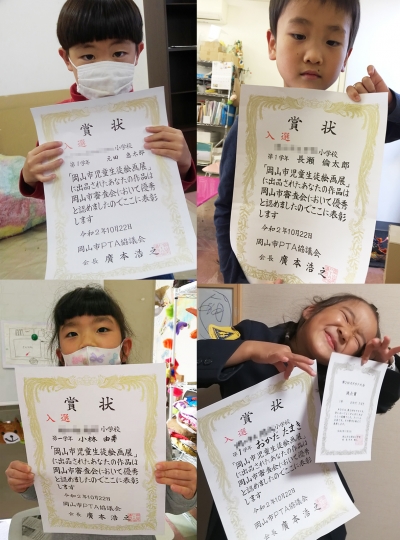 賞状
入選
小学校
第1学年 元田 恵太郎
「岡山市児童生徒絵画展」
に出品されたあなたの作品は
岡山市審査会において優秀
と認めましたのでここに表彰
します
令和2年10月22日
岡山市PTA協議会
会長 廣本浩之
賞状
入選
小学校
第1学年 長瀬 倫太郎
「岡山市児童生徒絵画展」
に出品されたあなたの作品は
岡山市審査会において優秀
と認めましたのでここに表彰
します
令和2年10月22日
岡山市PTA協議会
会長 廣本浩之
賞状
入選
小学校
第一学年 小林 由芽
「岡山市児童生徒絵画展」
に出品されたあなたの作品は
岡山市審査会において優秀
と認めましたのでここに表彰
します
令和2年10月22日
岡山市PTA協議会
会長 廣本浩之
賞状
入選
第1学年 おかだ たまき
「岡山市児童生徒絵画展」
に出品されたあなたの作品は
岡山市審査会において優秀
と認めましたのでここに表彰
します
令和2年10月22日
岡山市PTA協議会
会長 廣本浩之